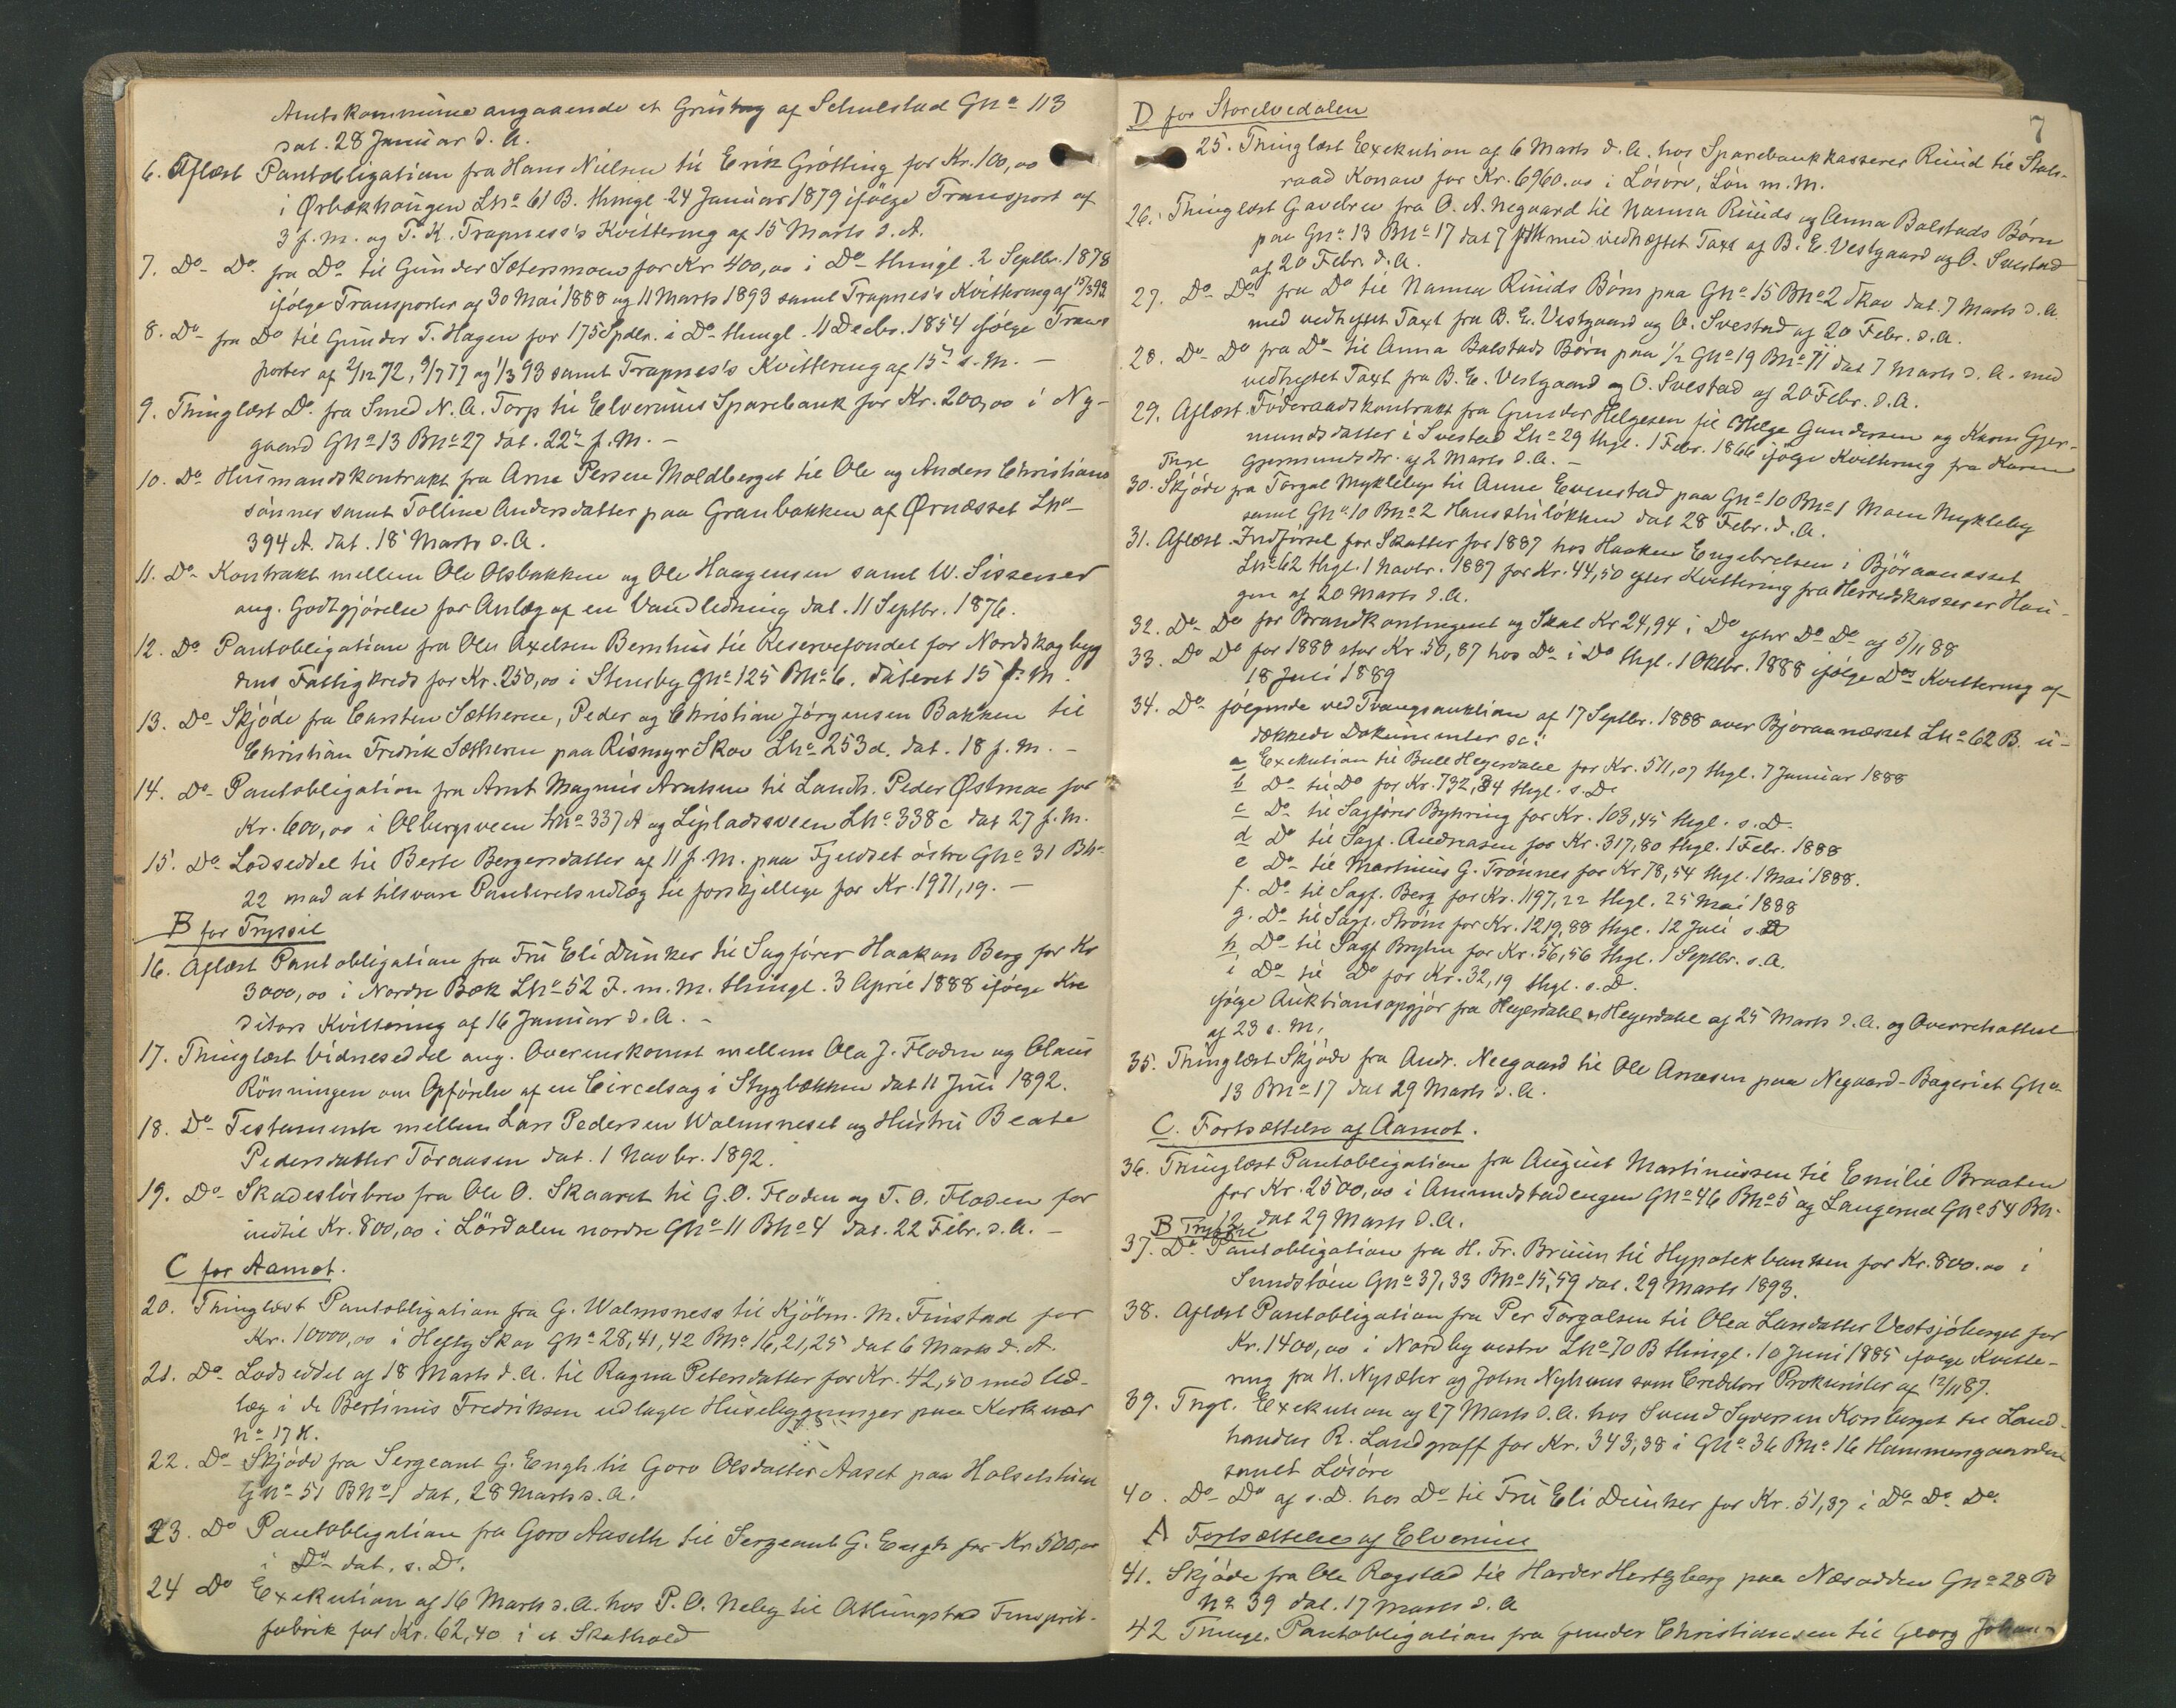 Amtskommune angaaende et Grustag af Schulstad Gno 113
dat. 28 Januar d. A.
6. Aflæst Pantobligation fra Hans Nielsen til Erik Grötting for Kr. 100,00
i Ørbækhaugen Lno 61 B. thingl. 24 Januar 1879 ifölge Transport af
3 f. m. og T. K. Trapness's Kvittering af 15 Marts d. A.
7. Do Do fra Do til Gunder Sætersmoen for Kr 400,00 i Do thingl. 2 Septbr. 1878
ifölge Transporter af 30 Mai 1888 og 11 Marts 1893 samt Trapnes's Kvittering af 15/3 93.
8. Do fra Do til Gunder T. Hagen for 175 Spdlr. i Do thingl. 11 Decbr. 1854 ifölge Trans
porter af 2/12 72, 9/7 77 og 1/3 93 samt Trapnes's Kvittering af 15 s. m. —
9. Thinglæst Do. fra Smed N. A. Torp til Elverums Sparebank for Kr. 200,00 i Ny-
gaard Gno 13 Bno 27 dat. 22 f. m. —
10. Do Husmandskontrakt fra Arne Persen Moldberget til Ole og Anders Christians
sönner samt Tolline Andersdatter paa Granbakken af Ørnæsset Lno
394 A. dat. 18 Marts d. A.
11. Do Kontrakt mellem Ole Olsbakken og Ole Haagensen samt W. Sissener
ang. Godtgjörelse for Anlæg af en Vandledning dat. 11 Septbr. 1876.
12. Do Pantobligation fra Ole Axelsen Bernhus til Reservefondet for Nordskogbyg
dens Fattigkreds for Kr. 250,00 i Stensby Gno 125 Bno 6. dateret 15 f. m.
13. Do Skjöde fra Carsten Sætheren, Peder og Christian Jörgensen Bakken til
Christian Fredrik Sætheren paa Rismyr Skov Lno 253 d. dat. 18 f. m. —
14. Do Pantobligation fra Arnt Magnus Arntsen til Landh. Peder Østmoe for
Kr. 600,00 i Olbergsveen Lno 337 A og Lipladssveen Lno 338 c dat 27 f. m.
15. Do Lodseddel til Berte Bergersdatter af 11 f. m. paa Fjeldset östre Gno 31 Bno
22 mod at tilsvare Panteretsudlæg til forskjellige for Kr. 1971,19. —
B for Trysil
16. Aflæst Pantobligation fra Fru Eli Dunker til Sagförer Haakon Berg for Kr
3000,00 i Nordre Bæk Lno 52 I. m. m. thingl. 3 April 1888 ifölge Kre
ditors Kvittering af 16 Januar d. A. —
17. Thinglæst Vidneseddel ang. Overenskomst mellem Ola J. Floden og Olaus
Rönningen om Opförelse af en Circelsag i Stygbækken dat 11 Juni 1892.
18. Do Testamente mellem Lars Pedersen Walmsneset og Hustru Beate
Pedersdatter Töraasen dat. 1 Novbr. 1892.
19. Do Skadeslösbrev fra Ole O. Skaaret til G. O. Floden og T. O. Floden for
indtil Kr. 800,00 i Lördalen nordre Gno 11 Bno 4 dat. 22 Febr. d. A. —
C for Aamot.
20. Thinglæst Pantobligation fra G. Walmsness til Kjöbm. M. Finstad for
Kr. 10000,00 i Hefty Skov Gno 28, 41, 42 Bno 16, 21, 25 dat 6 Marts d. A.
21. Do Lodseddel af 18 Marts d. A. til Ragna Petersdatter for Kr. 42,50 med Ud-
læg i de Bertinus Fredriksen udlagte Husebygninger paa Kirkenær
No 17 H.
22. Do Skjöde fra Sergeant G. Engh til Goro Olsdatter Aaset paa Holsetstuen
Gno 51 Bno 1 dat. 28 Marts d. A.
23. Do Pantobligation fra Goro Aaseth til Sergeant G. Engh for Kr 500,00
i Do dat. s. D.
24 Do Exekution af 16 Marts d. A. hos P. O. Neby til Atlungstad
fabrik for Kr. 62,40 i et Skathold
7
D for Storelvedalen
25. Thinglæst Exekution af 6 Marts d. A. hos Sparebankkasserer Ruud til Stats-
raad Konow for Kr. 6960.00 i Lösöre, Lön m. m.
26. Thinglæst Gavebrev fra O. A. Negaard til Nanna Ruuds og Anna Bolstads Börn
paa Gno 13 Bno 17 dat 7 med vedhæftet Taxt af B. E. Vestgaard og O. Svestad
af 20 Febr. d. A.
27. Do Do fra Do til Nanna Ruuds Börn paa Gno 15 Bno 2 Skov dat. 7 Marts d. A.
med vedheftet Taxt fra B. E. Vestgaard og O. Svestad af 20 Febr. d. A.
28. Do Do fra Do til Anna Bolstads Börn paa 1/2 Gno 19 Bno 71 dat 7 Marts d. A. med
vedheftet Taxt fra B. E. Vestgaard og O. Svestad af 20 Febr. d. A.
29. Aflæst Föderaadskontrakt fra Gunder Helgesen til Helge Gundersen og Karen Gjer-
mundsdatter i Svestad Lno 29 thgl. 1 Febr. 1866 ifölge Kvittering fra Karen
Gjermundsdtr. af 2 Marts d. A. —
Tingl
30. Skjöde fra Torgal Mykleby til Anne Evenstad paa Gno 10 Bno 1 Moen Mykleby
samt Gno 10 Bno 2 Hansstulökken dat 28 Febr. d. A.
31. Aflæst Indförsel for Skatter for 1887 hos Haaken Engebretsen i Björaanæsset
Lno 62 thgl. 1 Novbr. 1887 for Kr. 44,50 efter Kvittering fra Herredskasserer Hau-
gen af 20 Marts d. A.
32. Do Do for Brandkontingent og Skat Kr 24,94 i Do efter Do Do af 5/11 88
33. Do Do for 1888 stor Kr. 50,87 hos Do i Do thgl. 1 Oktbr. 1888 ifölge Dos Kvittering af
18 Juli 1889
34. Do fölgende ved Tvangsauktion af 17 Septbr. 1888 over Björaanæsset Lno 62 B. u-
dækkede Dokumenter sc:
a Exekution til Bull Heyerdahl for Kr. 511,07 thgl. 7 Januar 1888
b Do til Do for Kr. 732,84 thgl. s. D.
c Do til Sagförer Byhring for Kr. 103,45 thgl. s. D.
d Do til Sagf. Andreasen for Kr. 317,80 thgl. 1 Febr. 1888
e Do til Martinus G. Trönnes for Kr 78,54 thgl. 1 Mai 1888.
f. Do til Sagf. Berg for Kr. 1197,22 thgl. 25 Mai 1888
g. Do til Sagf. Ström for Kr. 1219,88 thgl. 12 Juli s. A
h Do til Sagf Bryhn for Kr. 56,56 thgl. 1 Septbr. s. A.
i Do til Do for Kr. 32,19 thgl. s. D.
ifölge Auktionsopgjör fra Heyerdahl & Heyerdahl af 25 Marts d. A. og Overretsattest
af 23 s. m.
35. Thinglæst Skjöde fra Andr. Neegaard til Ole Arnesen paa Negaard-Bageriet Gno
13 Bno 17 dat 29 Marts d. A.
C. Fortsættelse af Aamot.
36. Thinglæst Pantobligation fra August Martinussen til Emilie Braaten
for Kr. 2500,00 i Amundstadengen Gno 46 Bno 5 og Langerud Gno 54 Bn.
12 dat 29 Marts d. A.
B Trysil
37. Do. Pantobligation fra H. Fr. Bruun til Hypotekbanken for Kr. 800.00 i
Sundslöen Gno 37, 33 Bno 15, 59 dat. 29 Marts 1893.
38. Aflæst Pantobligation fra Per Torgalsen til Olea Larsdatter Vestsjöberget for
Kr. 1400,00 i Nordby vestre Lno 70 B thingl. 10 Juni 1885 ifölge Kvitte-
ring fra H. Nysæter og John Nyhuus som Creditors Prokurister af 12/11 87.
39. Tngl. Exekution af 27 Marts d. A. hos Svend Syversen Korsberget til Land-
handler R. Landgraff for Kr. 343,38 i Gno 36 Bno 16 Hammergaarden
samt Lösöre
40. Do Do af s. D. hos Do til Fru Eli Dunker for Kr. 51,37 i Do Do Do.
A Fortsættelse af Elverum
41. Skjöde fra Ole Rogstad til Harder Hertzberg paa Næsodden Gno 28 B
No 39 dat. 17 Marts d. A
42 Thingl. Pantobligation fra Gunder Christiansen til Georg Johan-